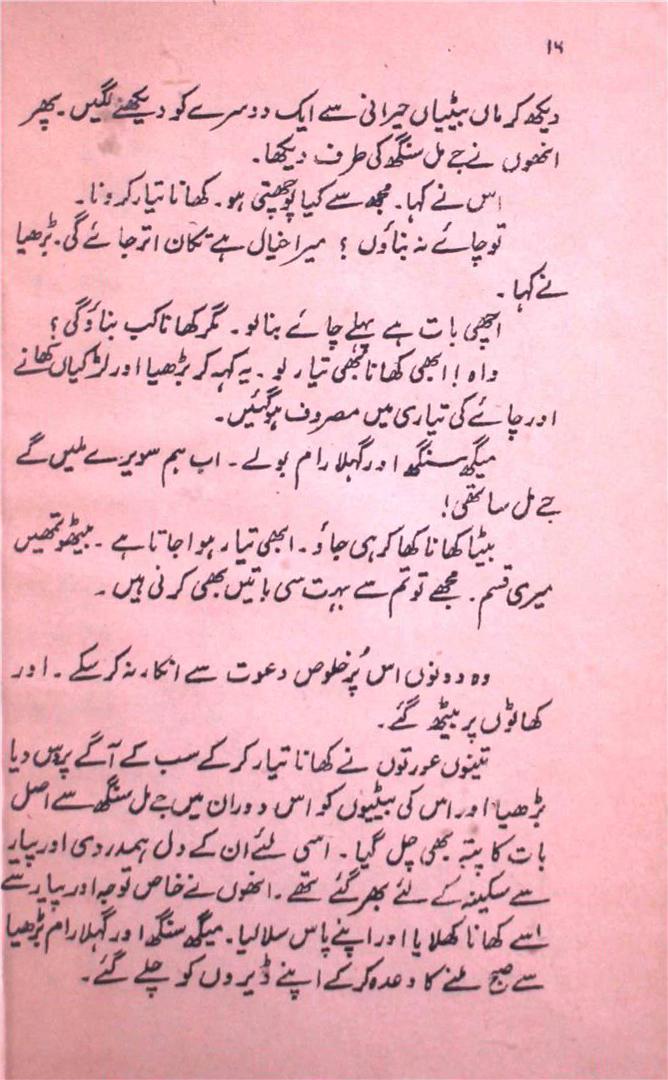 ۱۶
دیکھ کر ماں بیٹیاں حیرانی سے ایک دوسرے کو دیکھنے لگیں۔ پھر
انھوں نے جے مل سنگھ کی طرف دیکھا۔
اس نے کہا۔ مجھ سے کیا پوچھتی ہو۔ کھانا تیار کرو نا۔
تو چائے نہ بناؤں ؟ میرا خیال ہے تکان اتر جائے گی۔ بڑھیا
نے کہا۔
اچھی بات ہے پہلے چائے بنا لو۔ مگر کھانا کب بناؤ گی ؟
واہ ! ابھی کھانا بھی تیار لو۔ یہ کہہ کر بڑھیا اور لڑکیاں کھانے
اور چائے کی تیاری میں مصروف ہوگئیں۔
میگھ سنگھ اور گہلا رام بولے۔ اب ہم سویرے ملیں گے
جے مل ساتھی!
بیٹا کھانا کھا کر ہی جاؤ۔ ابھی تیار ہوا جاتا ہے۔ بیٹھو تمھیں
میری قسم۔ مجھے تو تم سے بہت سی باتیں بھی کرنی ہیں۔
وہ دونوں اس پُر خلوص دعوت سے انکار نہ کرسکے۔ اور
کھاٹوں پر بیٹھ گئے۔
تینوں عورتوں نے کھانا تیار کرکے سب کے آگے پروس دیا
بڑھیا اور اس کی بیٹیوں کو اس دوران میں جے مل سنگھ سے اصل
بات کا پتہ بھی چل گیا۔ اسی لئے ان کے دل ہمدردی اور پیار
سے سکینہ کے لئے بھر گئے تھے۔ انھوں نے خاص توجہ اور پیار سے
اسے کھانا کھلایا اور اپنے پاس سلا لیا۔ میگھ سنگھ اور گہلا رام بڑھیا
سے صبح ملنے کا وعدہ کرکے اپنے ڈیروں کو چلے گئے۔